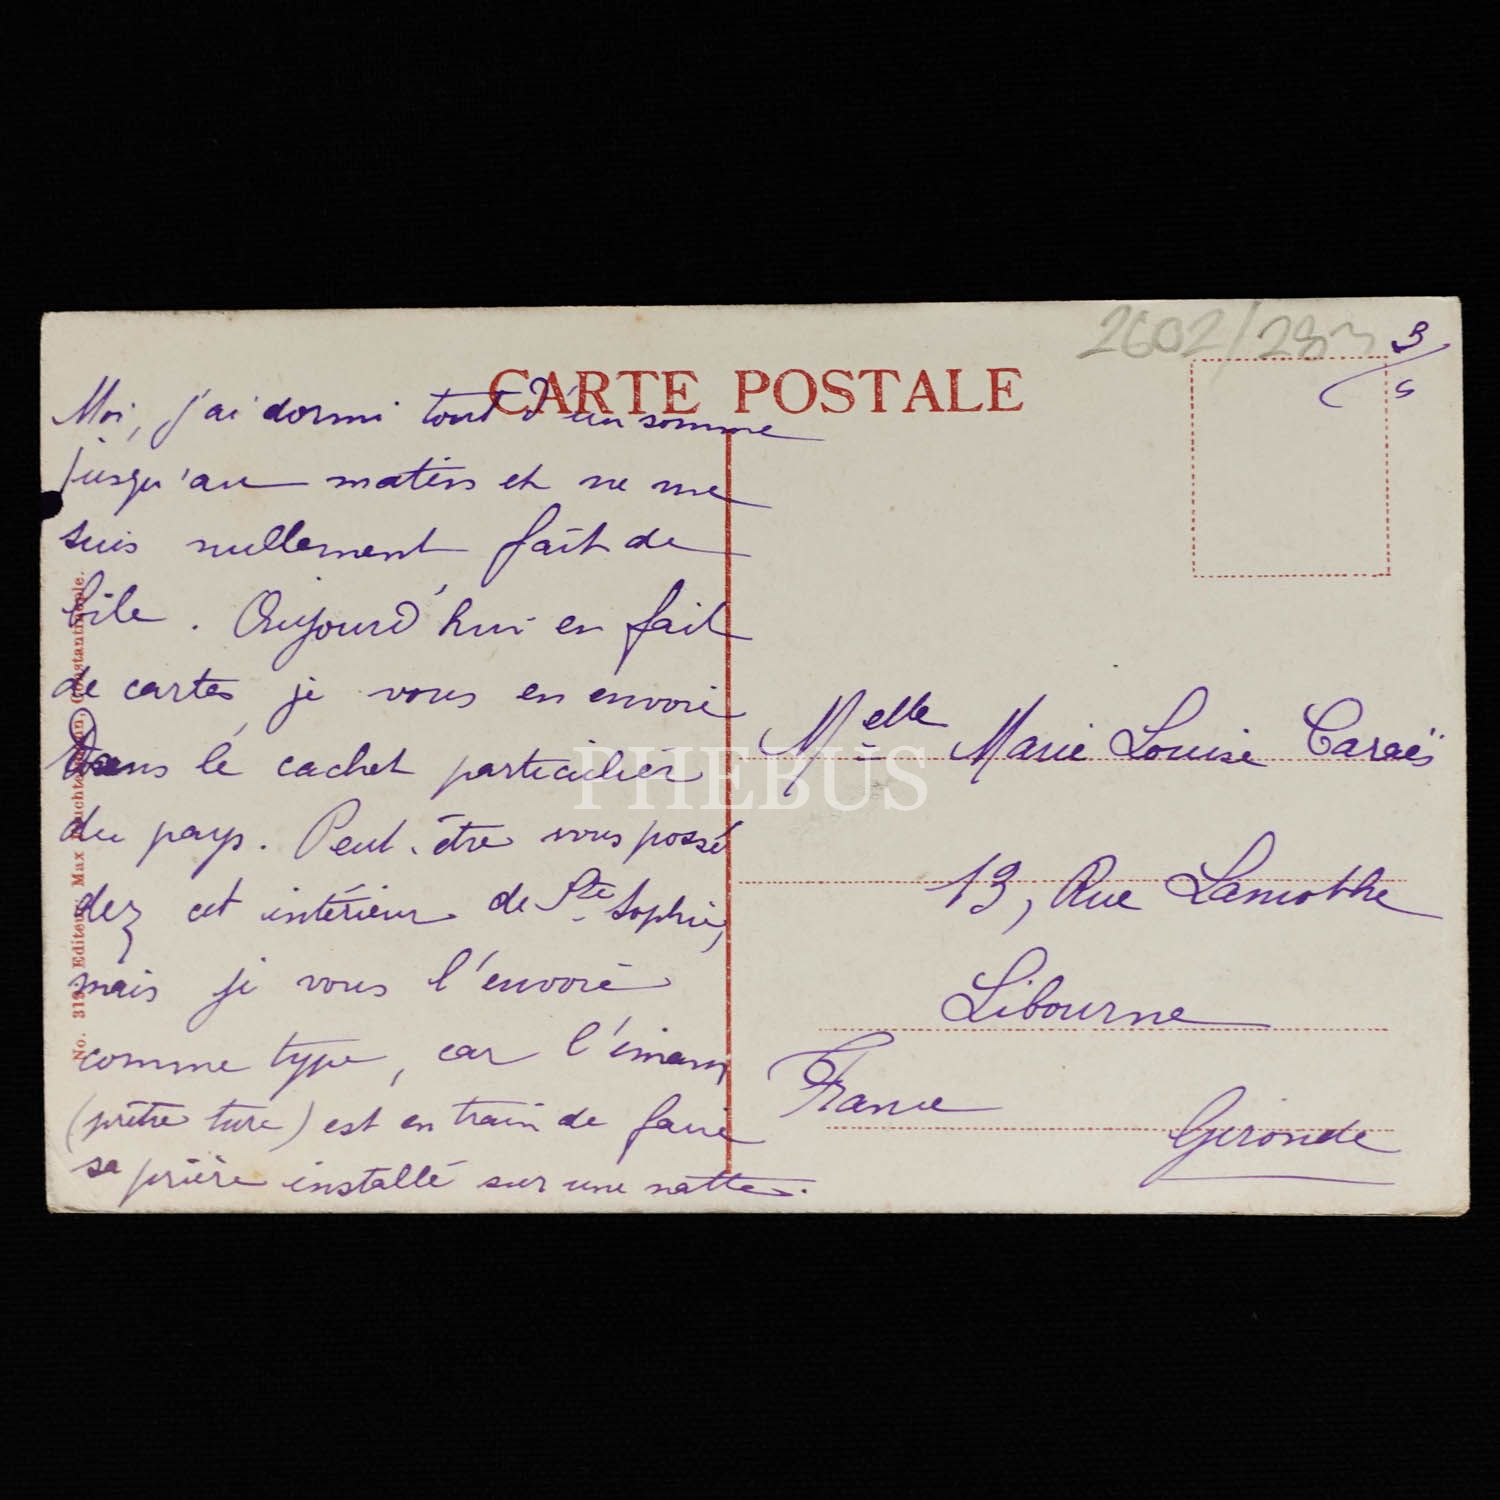 CARTE POSTALE
2602/283
3/5
Moi, j'ai dormi tout d'un somme
jusqu'au matin et ne me
suis nullement fait de
bile. Aujourd'hui en fait
de cartes je vous en envoie
dans le cachet particulier
du pays. Peut-être vous possé
dez cet intérieur de Ste Sophie,
mais je vous l'envoie
comme type, car l'imam
(prêtre turc) est en train de faire
sa prière installé sur une natte.
Melle Marie Louise Caraës
13, Rue Lamothe
Libourne
France
Gironde
No. 313 Editeur: Max Fruchtermann, Constantinople.
PHEBUS